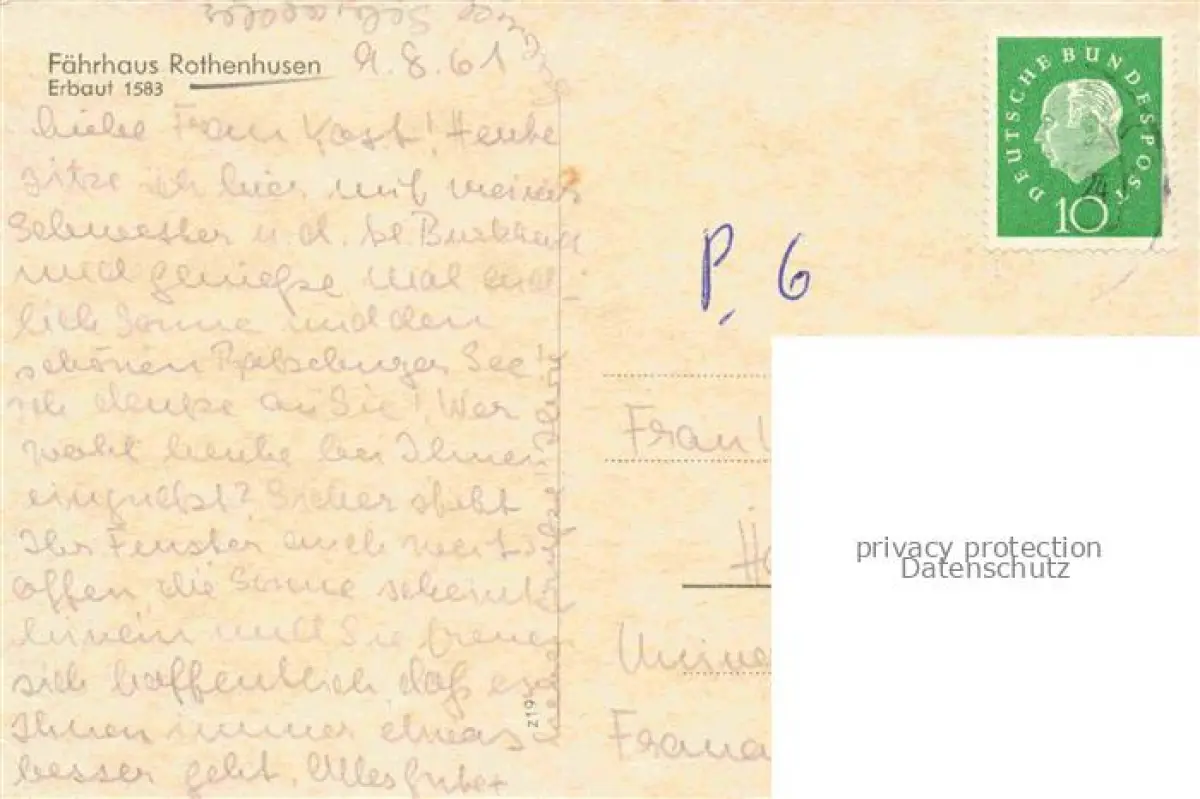 Fährhaus Rothenhusen
Erbaut 1583
9.8.61
Liebe Frau Kost! Heute
sitze ich hier mit meiner
Schwester u. d.
und genieße mal end-
lich Sonne und den
schönen Ratzeburger See!
Ich denke an Sie! Wer
wohl heute bei Ihnen
einguckt? Sicher steht
Ihr Fenster auch weit
offen, die Sonne scheint
hinein und Sie freuen
sich hoffentlich daß es
Ihnen immer etwas
besser geht. Alles Gute
z19
DEUTSCHE BUNDESPOST
10
P. 6
Frau
privacy protection
Datenschutz